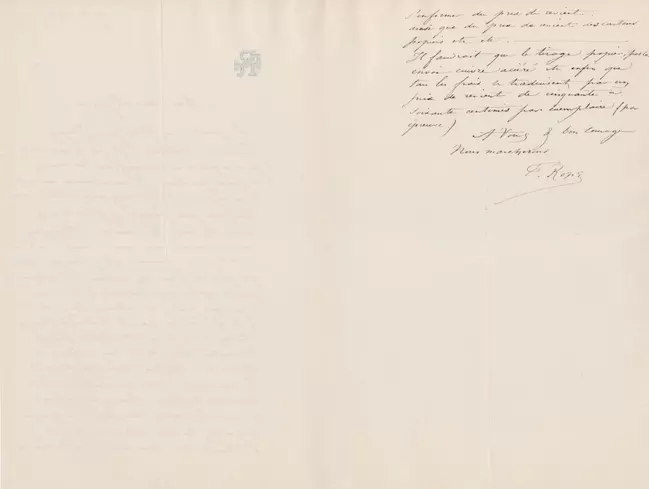 S'informer du prix de revient
ainsi que du prix de revient des cartons
papiers etc etc
Il faudrait que le tirage papier, port
envoi cuivre aciéré etc enfin que
tous les frais se traduisent par un
prix de revient de cinquante à
soixante centimes par exemplaire (par
épreuve)
A Vous & bon courage
Nous marcherons
F. Rops